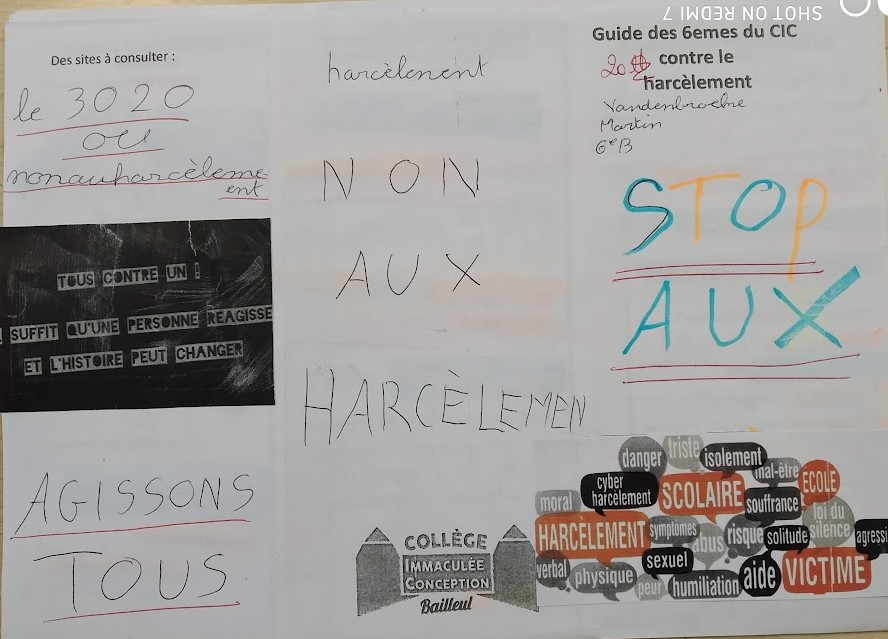 SHOT ON REDMI 7
Des sites à consulter :
le 3020
ou
nonauharcèleme-
ent
TOUS CONTRE UN !
SUFFIT QU'UNE PERSONNE REAGISSE
ET L'HISTOIRE PEUT CHANGER
AGISSONS
TOUS
harcèlement
NON
AUX
HARCÈLEMEN
COLLÈGE
IMMACULÉE
CONCEPTION
Bailleul
Guide des 6emes du CIC
contre le
harcèlement
Martin
6eB
STOP
AUX
danger
triste
isolement
mal-être
ECOLE
cyber
harcèlement
SCOLAIRE
moral
souffrance
loi du
silence
HARCÈLEMENT
symptômes
abus
risque
solitude
agressi
verbal
physique
sexuel
peur
humiliation
aide
VICTIME